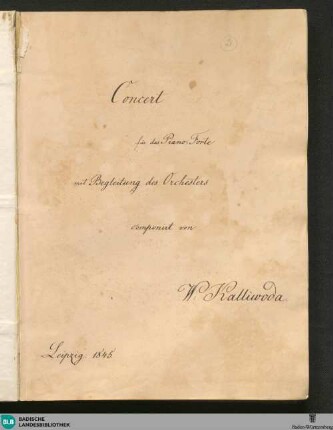 Concert
für das Piano-Forte
mit Begleitung des Orchesters
componirt von
W. Kalliwoda.
Leipzig 1845
BLB
BADISCHE
LANDESBIBLIOTHEK
Baden-Württemberg